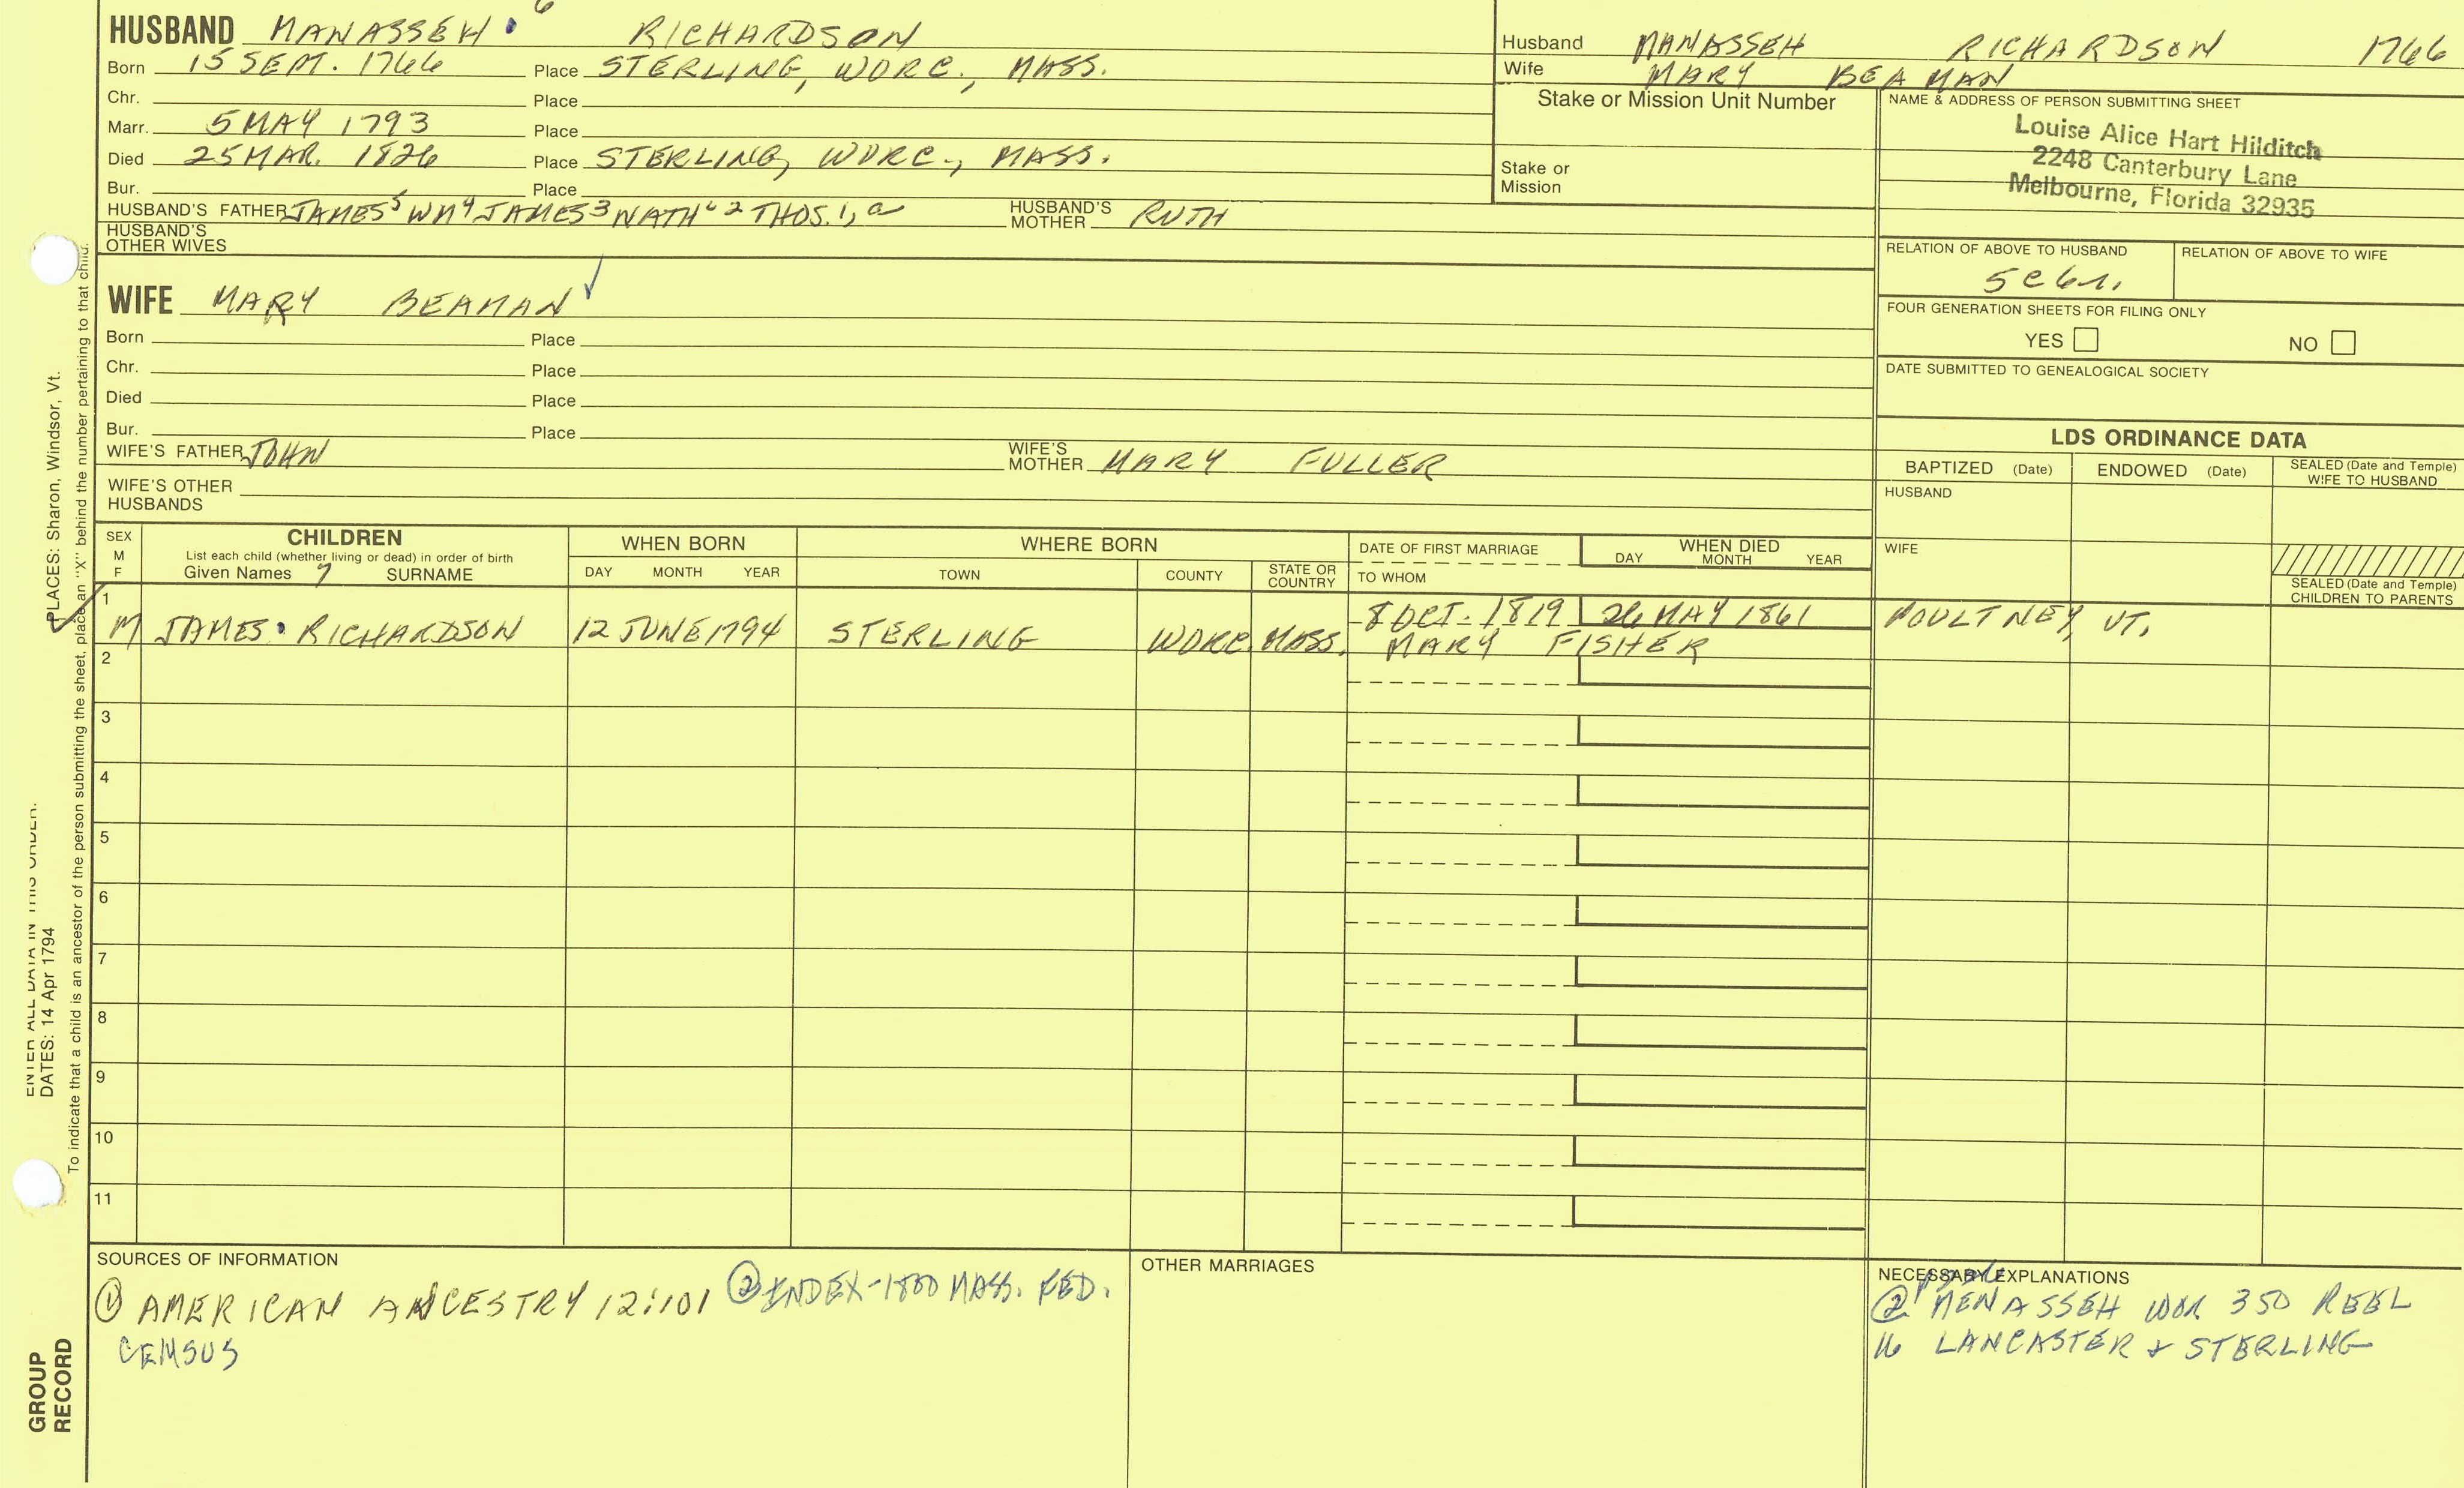 6
HUSBAND MANASSEH RICHARDSON
Born 15 SEPT. 1766 Place STERLING, WORC., MASS.
Chr. Place
Marr. 5 MAY 1793 Place
Died 25 MAR. 1826 Place STERLING, WORC., MASS.
Bur. Place
HUSBAND'S FATHER JAMES5 WM4 JAMES3 NATHL2 THOS.1, a HUSBAND'S MOTHER RUTH
HUSBAND'S OTHER WIVES
Husband MANASSEH RICHARDSON 1766
Wife MARY BEAMAN
Stake or Mission Unit Number
Stake or Mission
NAME & ADDRESS OF PERSON SUBMITTING SHEET
Louise Alice Hart Hilditch
2248 Canterbury Lane
Melbourne, Florida 32935
RELATION OF ABOVE TO HUSBAND RELATION OF ABOVE TO WIFE
5C6r.
FOUR GENERATION SHEETS FOR FILING ONLY
YES NO
DATE SUBMITTED TO GENEALOGICAL SOCIETY
WIFE MARY BEAMAN ✓
Born Place
Chr. Place
Died Place
Bur. Place
WIFE'S FATHER JOHN WIFE'S MOTHER MARY FULLER
WIFE'S OTHER HUSBANDS
LDS ORDINANCE DATA
BAPTIZED (Date) ENDOWED (Date) SEALED (Date and Temple) WIFE TO HUSBAND
HUSBAND
WIFE
SEALED (Date and Temple) CHILDREN TO PARENTS
SEX M F
CHILDREN
List each child (whether living or dead) in order of birth
Given Names 7 SURNAME
WHEN BORN
DAY MONTH YEAR
WHERE BORN
TOWN COUNTY STATE OR COUNTRY
DATE OF FIRST MARRIAGE
TO WHOM
WHEN DIED
DAY MONTH YEAR
1 M JAMES RICHARDSON 12 JUNE 1794 STERLING WORC. MASS. 8 OCT. 1819 26 MAY 1861 POULTNEY, VT.
MARY FISHER
2
3
4
5
6
7
8
9
10
11
SOURCES OF INFORMATION
① AMERICAN ANCESTRY 12:101 ② INDEX-1800 MASS. FED.
CENSUS
OTHER MARRIAGES
NECESSARY EXPLANATIONS
② MENASSEH WOR 350 REEL
16 LANCASTER & STERLING
PLACES: Sharon, Windsor, Vt.
ENTER ALL DATA IN THIS ORDER:
DATES: 14 Apr 1794
To indicate that a child is an ancestor of the person submitting the sheet, place an "X" behind the number pertaining to that child.
GROUP
RECORD